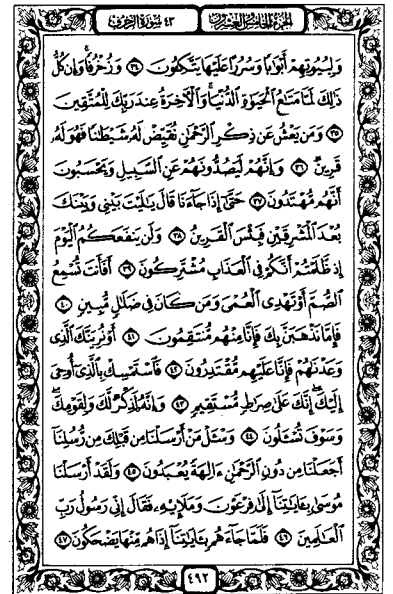 الجزء الخامس والعشرون
٤٣ سورة الزخرف
وَلِبُيُوتِهِمْ أَبْوَٰبًا وَسُرُرًا عَلَيْهَا يَتَّكِـُٔونَ ٣٤ وَزُخْرُفًا ۚ وَإِن كُلُّ
ذَٰلِكَ لَمَّا مَتَـٰعُ ٱلْحَيَوٰةِ ٱلدُّنْيَا ۚ وَٱلْـَٔاخِرَةُ عِندَ رَبِّكَ لِلْمُتَّقِينَ
٣٥ وَمَن يَعْشُ عَن ذِكْرِ ٱلرَّحْمَـٰنِ نُقَيِّضْ لَهُۥ شَيْطَـٰنًا فَهُوَ لَهُۥ
قَرِينٌ ٣٦ وَإِنَّهُمْ لَيَصُدُّونَهُمْ عَنِ ٱلسَّبِيلِ وَيَحْسَبُونَ
أَنَّهُم مُّهْتَدُونَ ٣٧ حَتَّىٰٓ إِذَا جَآءَنَا قَالَ يَـٰلَيْتَ بَيْنِى وَبَيْنَكَ
بُعْدَ ٱلْمَشْرِقَيْنِ فَبِئْسَ ٱلْقَرِينُ ٣٨ وَلَن يَنفَعَكُمُ ٱلْيَوْمَ
إِذ ظَّلَمْتُمْ أَنَّكُمْ فِى ٱلْعَذَابِ مُشْتَرِكُونَ ٣٩ أَفَأَنتَ تُسْمِعُ
ٱلصُّمَّ أَوْ تَهْدِى ٱلْعُمْىَ وَمَن كَانَ فِى ضَلَـٰلٍ مُّبِينٍ ٤٠
فَإِمَّا نَذْهَبَنَّ بِكَ فَإِنَّا مِنْهُم مُّنتَقِمُونَ ٤١ أَوْ نُرِيَنَّكَ ٱلَّذِى
وَعَدْنَـٰهُمْ فَإِنَّا عَلَيْهِم مُّقْتَدِرُونَ ٤٢ فَٱسْتَمْسِكْ بِٱلَّذِىٓ أُوحِىَ
إِلَيْكَ ۖ إِنَّكَ عَلَىٰ صِرَٰطٍ مُّسْتَقِيمٍ ٤٣ وَإِنَّهُۥ لَذِكْرٌ لَّكَ وَلِقَوْمِكَ ۖ
وَسَوْفَ تُسْـَٔلُونَ ٤٤ وَسْـَٔلْ مَنْ أَرْسَلْنَا مِن قَبْلِكَ مِن رُّسُلِنَآ
أَجَعَلْنَا مِن دُونِ ٱلرَّحْمَـٰنِ ءَالِهَةً يُعْبَدُونَ ٤٥ وَلَقَدْ أَرْسَلْنَا
مُوسَىٰ بِـَٔايَـٰتِنَآ إِلَىٰ فِرْعَوْنَ وَمَلَإِيْهِۦ فَقَالَ إِنِّى رَسُولُ رَبِّ
ٱلْعَـٰلَمِينَ ٤٦ فَلَمَّا جَآءَهُم بِـَٔايَـٰتِنَآ إِذَا هُم مِّنْهَا يَضْحَكُونَ ٤٧
٤٩٢